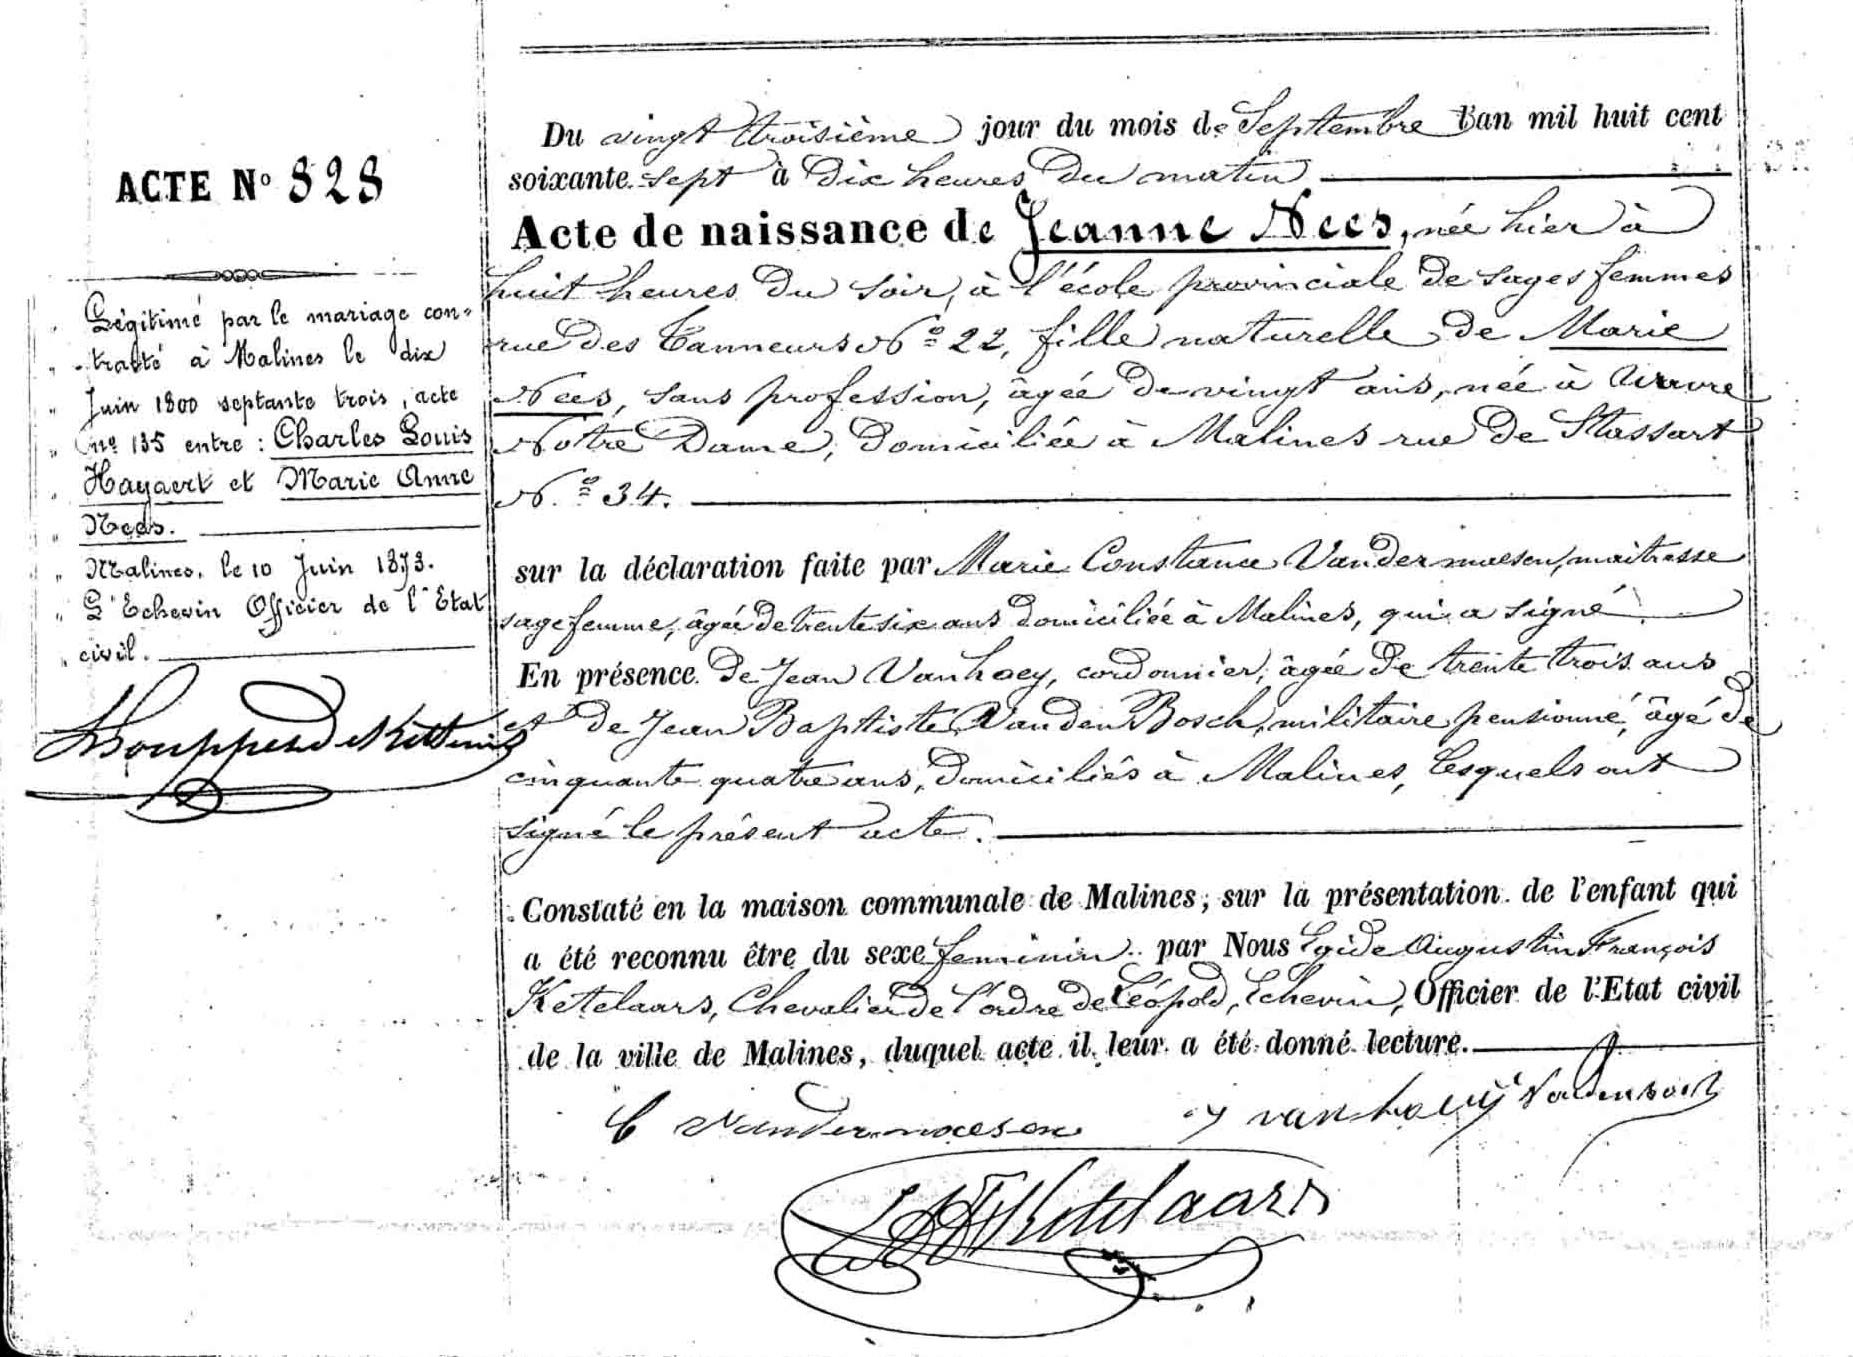 ACTE N° 828
Légitimé par le mariage con-
tracté à Malines le dix
Juin 1800 septante trois, acte
n° 135 entre : Charles Louis
Hayaert et Marie Anne
Nees.
Malines, le 10 Juin 1873.
L'Echevin Officier de l'Etat
civil.
Du vingt troisième jour du mois de Septembre l'an mil huit cent
soixante sept à dix heures du matin
Acte de naissance de Jeanne Nees, née hier à
huit heures du soir, à l'école provinciale de sages femmes
rue des Tanneurs N° 22, fille naturelle de Marie
Nees, sans profession, âgée de vingt ans, née à Wavre
Notre Dame, domiciliée à Malines rue de Stassart
N° 34.
sur la déclaration faite par Marie Constance Vandermaesen, maitresse
sage femme, âgée de trente six ans domiciliée à Malines, qui a signé
En présence de Jean Vanhoey, cordonnier, âgée de trente trois ans
et de Jean Baptiste Vanden Bosch, militaire pensionné, âgé de
cinquante quatre ans, domiciliés à Malines, lesquels ont
signé le présent acte.
Constaté en la maison communale de Malines, sur la présentation de l'enfant qui
a été reconnu être du sexe feminin par Nous Egide Augustin François
Ketelaars, Chevalier de l'ordre de Léopold, Echevin, Officier de l'Etat civil
de la ville de Malines, duquel acte il leur a été donné lecture.
C Vandermaesen J vanhoey Vandenbosch
Ketelaars